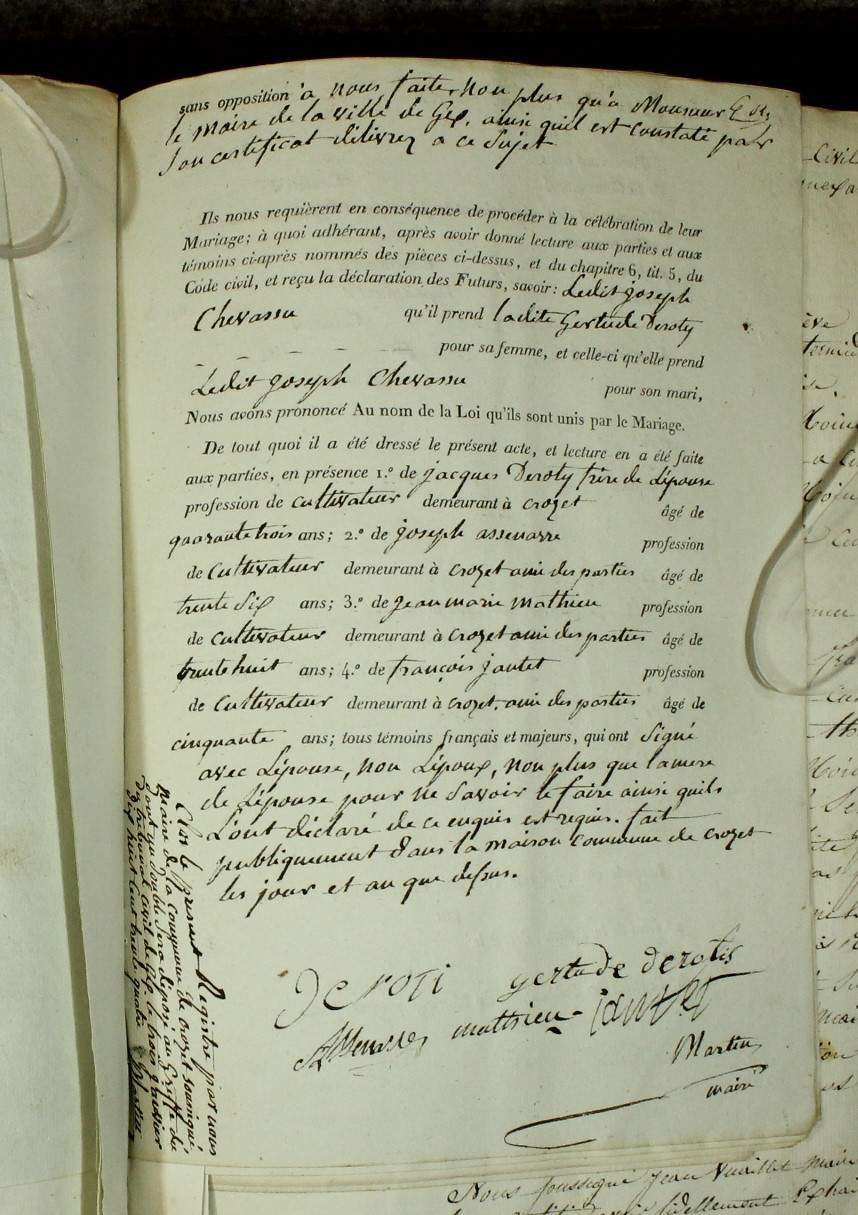 sans opposition à nous faite, non plus qu'à Monsieur
le Maire de la ville de Gex, ainsi quil est constaté par
Son certificat délivrez a ce Sujet
Ils nous requièrent en conséquence de procéder à la célébration de leur
Mariage; à quoi adhérant, après avoir donné lecture aux parties et aux
témoins ci-après nommés des pièces ci-dessus, et du chapitre 6, tit. 5, du
Code civil, et reçu la déclaration des Futurs, savoir: Ledit joseph
Chevassu qu'il prend ladite Gertude Deroty
pour sa femme, et celle-ci qu'elle prend
Ledit joseph Chevassu pour son mari,
Nous avons prononcé Au nom de la Loi qu'ils sont unis par le Mariage.
De tout quoi il a été dressé le présent acte, et lecture en a été faite
aux parties, en présence 1.º de jacques Deroty frère de Lépouse
profession de cultivateur demeurant à crozet âgé de
quarante trois ans; 2.º de joseph assenarre profession
de Cultivateur demeurant à crozet ami des parties âgé de
trente Six ans; 3.º de jean marie mathieu profession
de cultivateur demeurant à crozet ami des parties âgé de
trente huit ans; 4.º de françois jantet profession
de Cultivateur demeurant à crozet. ami des parties âgé de
cinquante ans; tous témoins français et majeurs, qui ont Signé
avec Lépouse, non Lépoux, non plus que lamere
de Lépouse pour ne Savoir le faire ainsi quils
L'ont déclaré de ce enquis est requis. fait
publiquement dans la maison commune de crozet
les jour et an que dessus.
Deroti gertude derotis
mathieu jantet
Martin
maire
Clos le present Registre par nous
Maire de la commune de crozet soussigné,
dont un double Sera déposé au Greffe du
tribunal civil de Gex le trois janvier
dix huit cent trente quatre Martin
Civil
Nous soussigné jean Vuaillet maire
fidellement